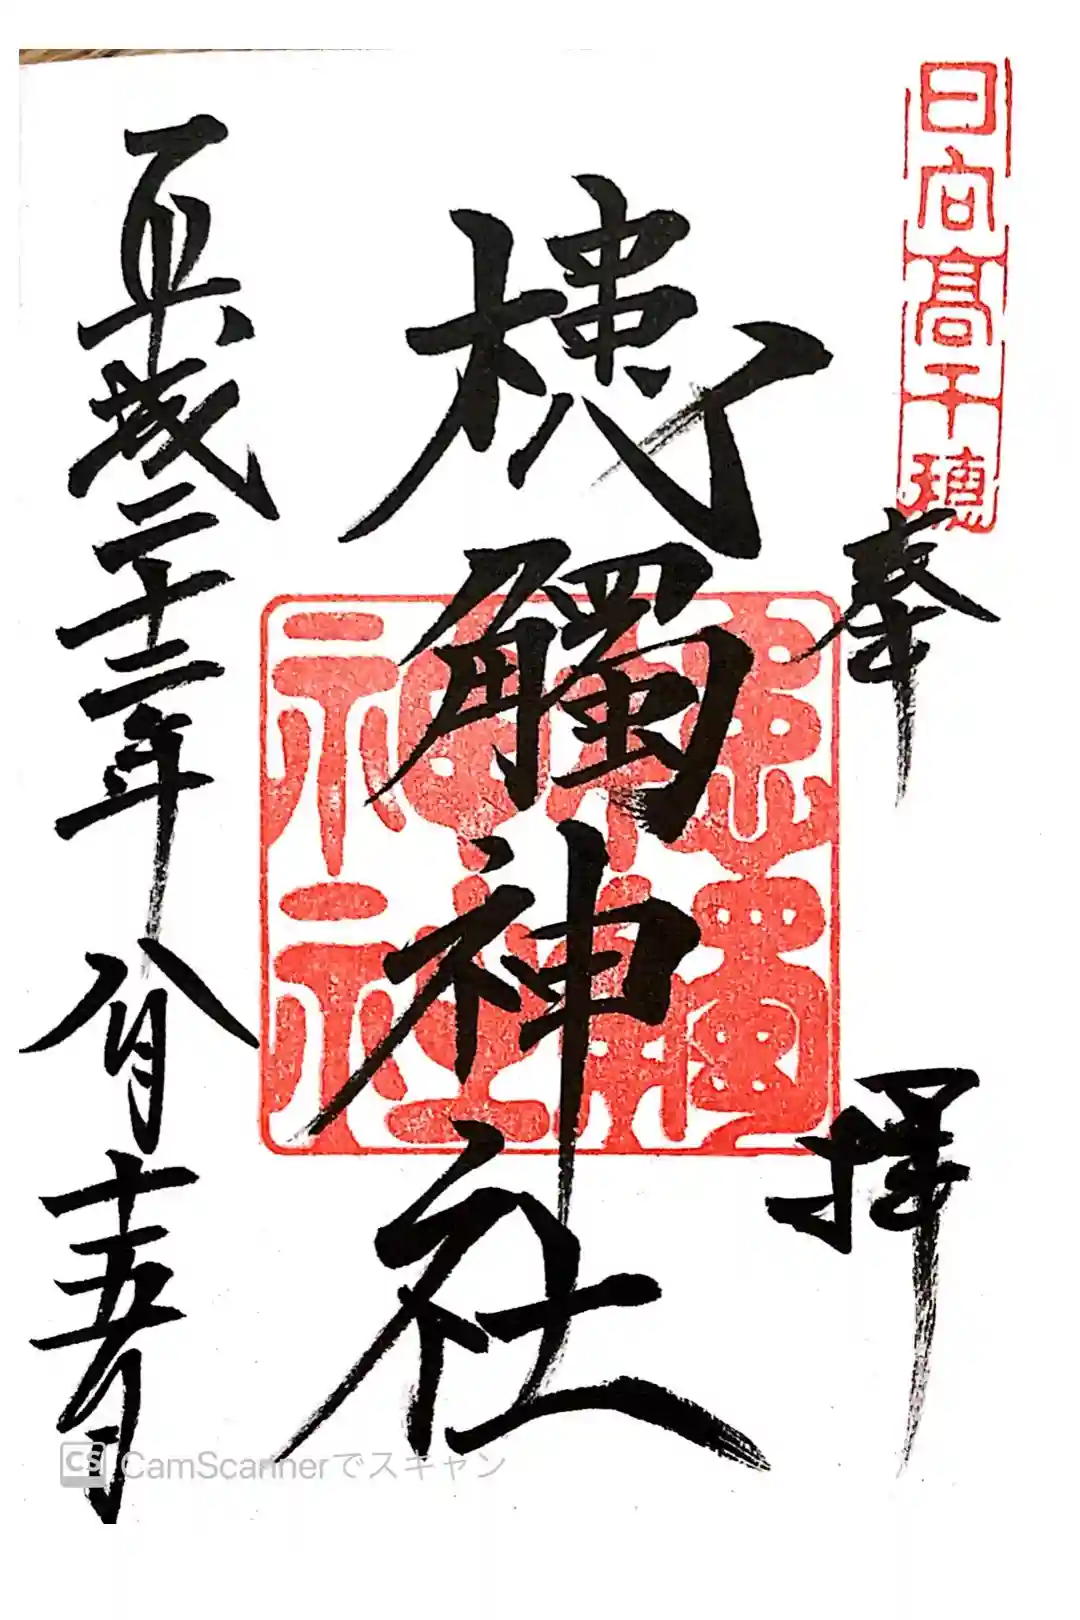 日向高千穂
奉拝
槵觸神社
槵觸神社
平成二十二年八月十五日
CS CamScannerでスキャン